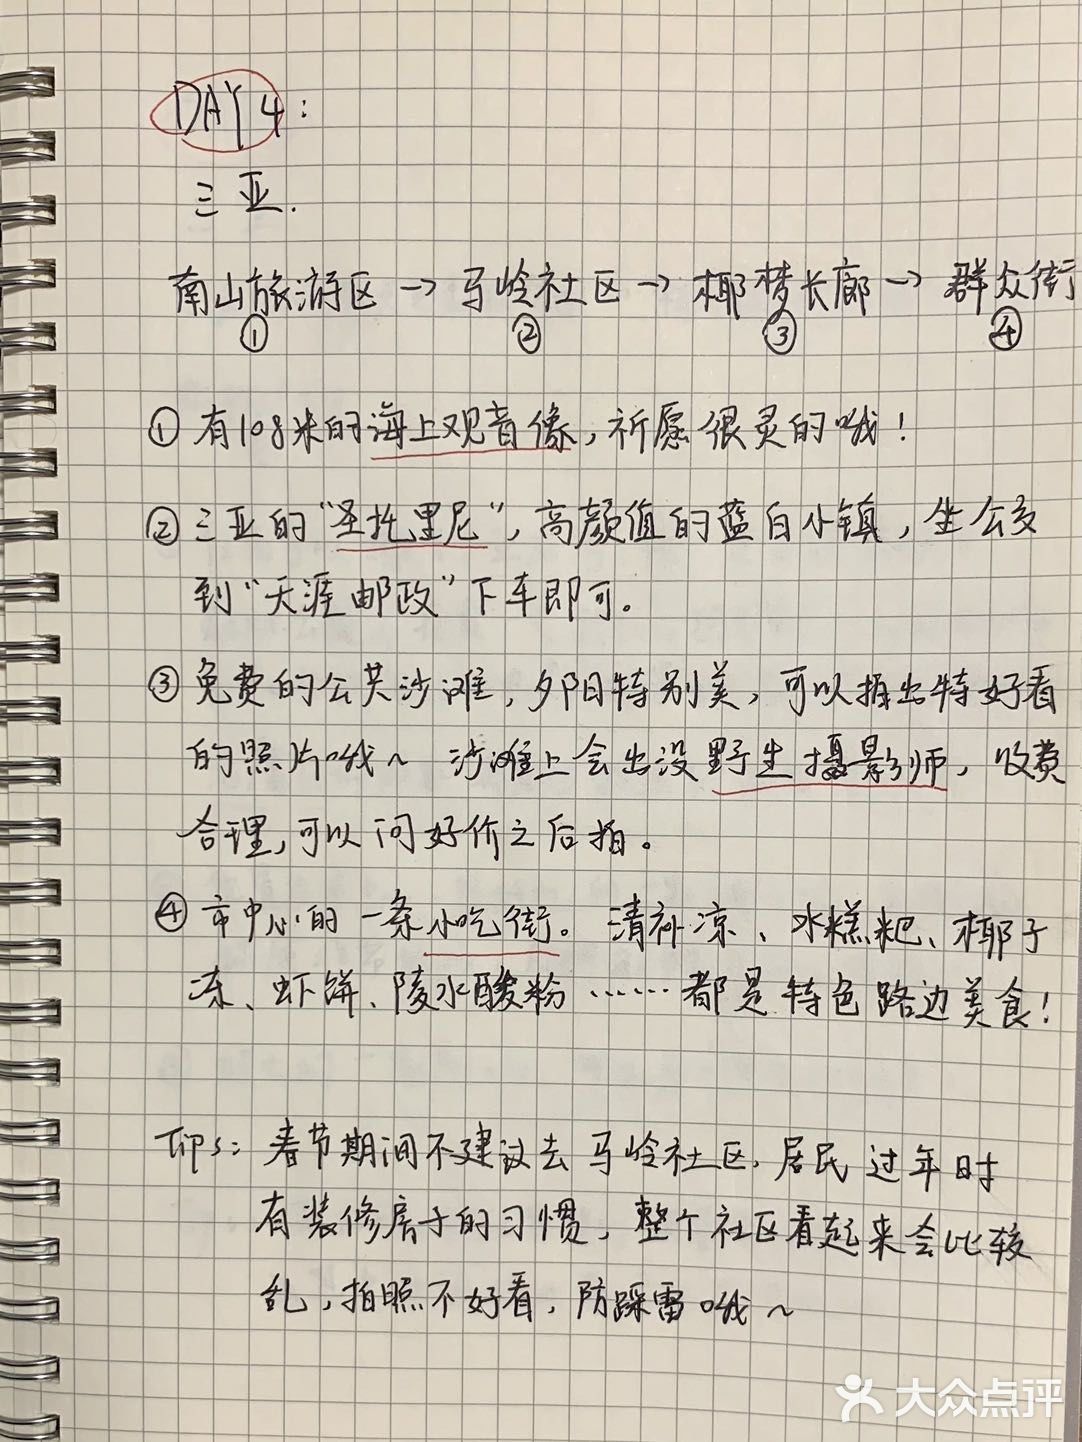 DAY 4：
三亚.
南山旅游区→马岭社区→椰梦长廊→群众街
① ② ③ ④
① 有108米的海上观音像，祈愿很灵的哦！
② 三亚的“圣托里尼”，高颜值的蓝白小镇，坐公交
到“天涯邮政”下车即可。
③ 免费的公共沙滩，夕阳特别美，可以拍出特好看
的照片哦～ 沙滩上会出没野生摄影师，收费
合理，可以问好价之后拍。
④ 市中心的一条小吃街。清补凉、冰糕粑、椰子
冻、虾饼、陵水酸粉……都是特色路边美食！
Tips：春节期间不建议去马岭社区，居民过年时
有装修房子的习惯，整个社区看起来会比较
乱，拍照不好看，防踩雷哦～
大众点评